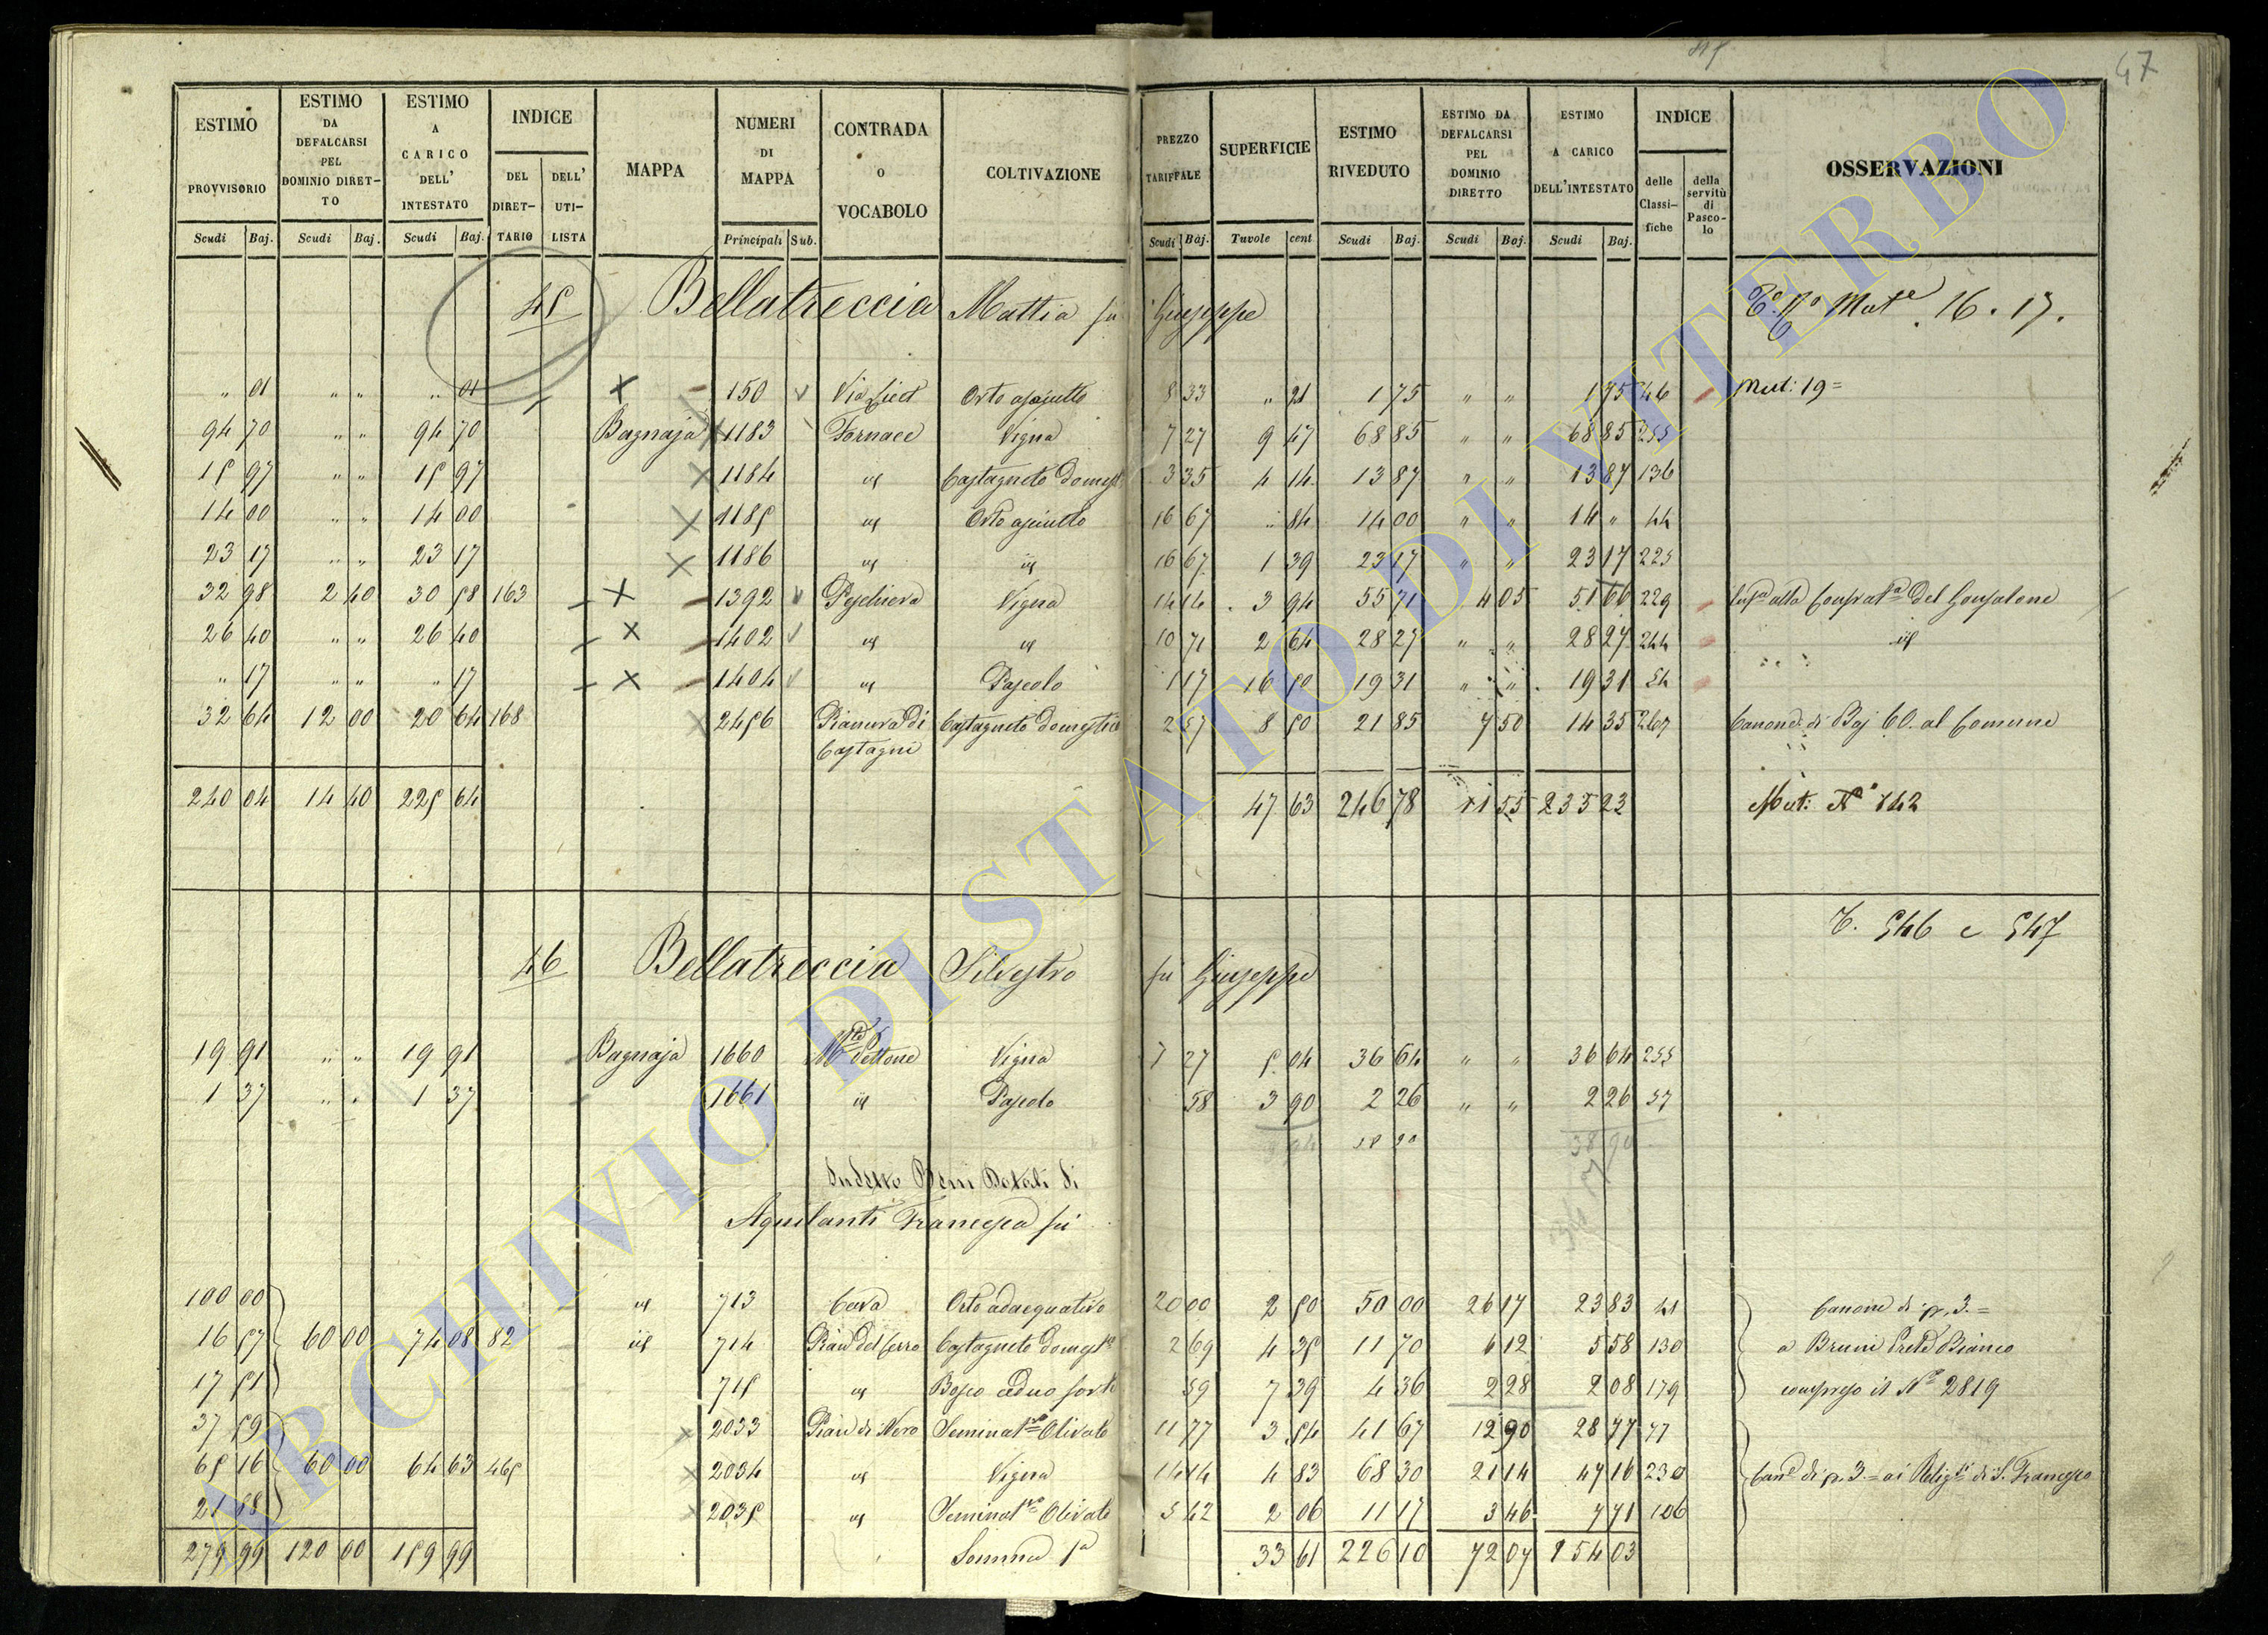 47
ESTIMO PROVVISORIO | ESTIMO DA DEFALCARSI PEL DOMINIO DIRETTO | ESTIMO A CARICO DELL' INTESTATO | INDICE DEL DIRETTARIO | DELL' UTILISTA | MAPPA | NUMERI DI MAPPA | CONTRADA O VOCABOLO | COLTIVAZIONE | PREZZO TARIFFALE | SUPERFICIE | ESTIMO RIVEDUTO | ESTIMO DA DEFALCARSI PEL DOMINIO DIRETTO | ESTIMO A CARICO DELL'INTESTATO | INDICE delle Classifiche | della servitù di Pascolo | OSSERVAZIONI
Scudi | Baj. | Scudi | Baj. | Scudi | Baj. | Principali | Sub. | Scudi | Baj. | Tavole | cent | Scudi | Baj. | Scudi | Baj. | Scudi | Baj.
45 Bellatreccia Mattia fu Giuseppe Mut.e 16. 17.
" 01 | " " | " 01 | 150 | Via | Orto asciutto | 8 33 | " 21 | 1 75 | " " | 1 75 | 46 | Mut: 19=
94 70 | " " | 94 70 | Bagnaja | 1183 | Fornace | Vigna | 7 27 | 9 47 | 68 85 | " " | 68 85 | 255
15 97 | " " | 15 97 | 1184 | id | Castagneto domest. | 3 35 | 4 14 | 13 87 | " " | 13 87 | 136
14 00 | " " | 14 00 | 1185 | id | Orto asciutto | 16 67 | " 84 | 14 00 | " " | 14 " | 44
23 17 | " " | 23 17 | 1186 | id | id | 16 67 | 1 39 | 23 17 | " " | 23 17 | 225
32 98 | 2 40 | 30 58 | 163 | 1392 | Peschiera | Vigna | 14 14 | 3 94 | 55 71 | 4 05 | 51 66 | 229 | alla Confrat.a del Gonfalone
26 40 | " " | 26 40 | 1402 | id | id | 10 71 | 2 64 | 28 27 | " " | 28 27 | 244 | id
" 17 | " " | " 17 | 1404 | id | Pascolo | 1 17 | 16 50 | 19 31 | " " | 19 31 | 54
32 64 | 12 00 | 20 64 | 168 | 2456 | Pianura di Castagni | Castagneto domestico | 2 57 | 8 50 | 21 85 | 7 50 | 14 35 | 267 | Canone di Baj 60. al Comune
240 04 | 14 40 | 225 64 | 47 63 | 246 78 | 11 55 | 235 23 | Mut: N° 142
T. 546 e 547
46 Bellatreccia Silvestro fu Giuseppe
19 91 | " " | 19 91 | Bagnaja | 1660 | Vigna | 7 27 | 5 04 | 36 64 | " " | 36 64 | 255
1 37 | " " | 1 37 | 1661 | id | Pascolo | 58 | 3 90 | 2 26 | " " | 2 26 | 57
8 94 | 38 90 | 38 90
Sudetto Beni Dotali di
Aquilanti Francesca fu
100 00 | 713 | id | Cava | Orto adacquativo | 20 00 | 2 50 | 50 00 | 26 17 | 23 83 | 41 | Canone di p. 3.=
16 57 | 60 00 | 74 08 | 82 | id | 714 | Pian del Cerro | Castagneto domest.o | 2 69 | 4 35 | 11 70 | 6 12 | 5 58 | 130 | a Bruni Bianco
17 51 | 715 | id | Bosco ceduo forte | 59 | 7 39 | 4 36 | 2 28 | 2 08 | 179 | compreso il N° 2819
37 59 | 2033 | Pian di Nero | Seminat.vo Olivato | 11 77 | 3 54 | 41 67 | 12 90 | 28 77 | 77
65 16 | 60 00 | 64 63 | 465 | 2034 | id | Vigna | 14 14 | 4 83 | 68 30 | 21 14 | 47 16 | 230 | Can.e di p. 3.= ai Relig.si di S. Francesco
21 88 | 2035 | id | Seminat.vo Olivato | 5 42 | 2 06 | 11 17 | 3 46 | 7 71 | 106
279 99 | 120 00 | 159 99 | Somma | 33 61 | 226 10 | 72 07 | 154 03
ARCHIVIO DI STATO DI VITERBO